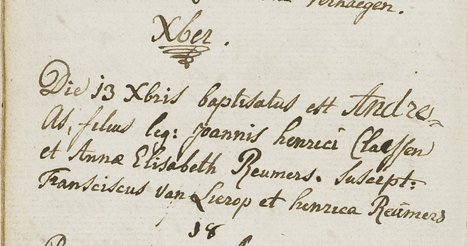 Verhaegen.
Xber.
Die 13 Xbris baptisatus est Andre=
As, filius leg: Joannis henrici Claessen
et Annæ Elisabeth Reumers. suscept:
Fransciscus van Lierop et henrica Reümers
18